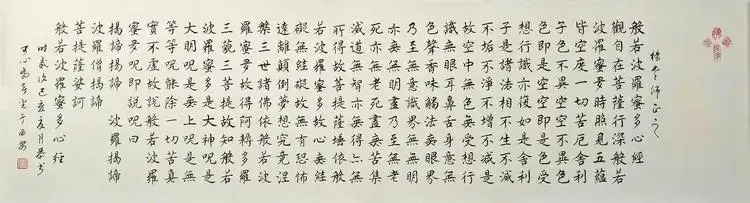 般若波羅蜜多心經
觀自在菩薩行深般若
波羅蜜多時照見五蘊
皆空度一切苦厄舍利
子色不異空空不異色
色即是空空即是色受
想行識亦復如是舍利
子是諸法相不生不滅
不垢不淨不增不減是
故空中無色無受想行
識無眼耳鼻舌身意無
色聲香味觸法無眼界
乃至無意識界無無明
亦無無明盡乃至無老
死亦無老死盡無苦集
滅道無智亦無得以無
所得故菩提薩埵依般
若波羅蜜多故心無罣
礙無罣礙故無有恐怖
遠離顛倒夢想究竟涅
槃三世諸佛依般若波
羅蜜多故得阿耨多羅
三藐三菩提故知般若
波羅蜜多是大神呪是
大明呪是無上呪是無
等等呪能除一切苦真
實不虛故說般若波羅
蜜多呪即說呪曰
揭諦揭諦 波羅揭諦
波羅僧揭諦
菩提薩婆訶
般若波羅蜜多心經
時歲次己亥夏月恭书
于西安